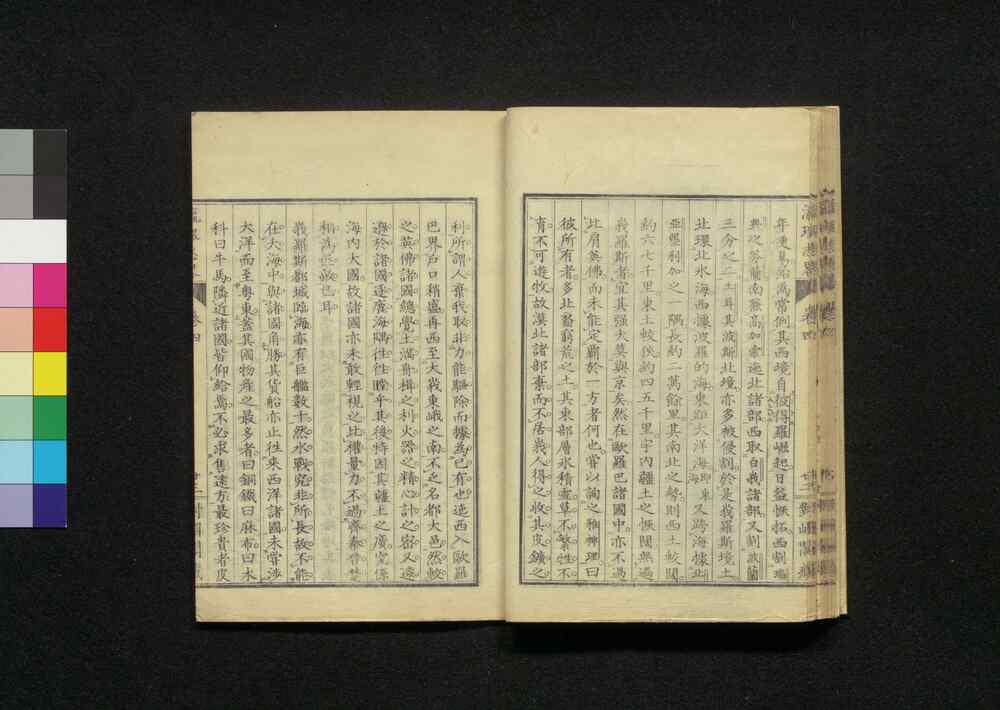 年更易始爲常例其西境自彼得羅崛起日益恢拓西割瑞
典之芬蘭南無高加索迤北諸部西取白峩諸部又割波蘭
三分之二土耳其波斯北境亦多被侵割於是峩羅斯境土
北環北氷海西據波羅的海東距大洋海海卽東又跨海據北
亞墨利加之一隅長約二萬餘里其南北之勢則西土較闊
約六七千里東土較狹約四五千里宇內疆土之恢闊無過
峩羅斯者宜其强大莫與京矣然在歐羅巴諸國中亦不過
比肩英佛而未能定霸於一方者何也嘗以詢之雅裨理曰
彼所有者多北荒窮荒之土其東部層氷積雪草不繁牲不
育不可遊牧故漠北諸部棄而不居峩人得之收其皮鑛之
利所謂人棄我取非力能驅除而據爲己有也迤西入歐羅
巴界戶口稍盛再西至大峩東峨之南不乏名都大邑然較
之英佛諸國總覺土滿舟楫之利火器之精心計之密又遠
遜於諸國逐鹿海隅往往瞠乎其後特因其疆土之廣究係
海內大國故諸國亦未敢輕視之比權量力不過齊秦晉楚
相爲匹敵已耳
峩羅斯都城臨海亦有巨艦數十然水戰究非所長故不能
在大海中與諸國角勝其貨船亦止往來西洋諸國未嘗涉
大洋而至粵東蓋其國物產之最多者曰銅鐵曰麻布曰木
科曰牛馬隣近諸國皆仰給焉不必求售遠方最珍貴者皮